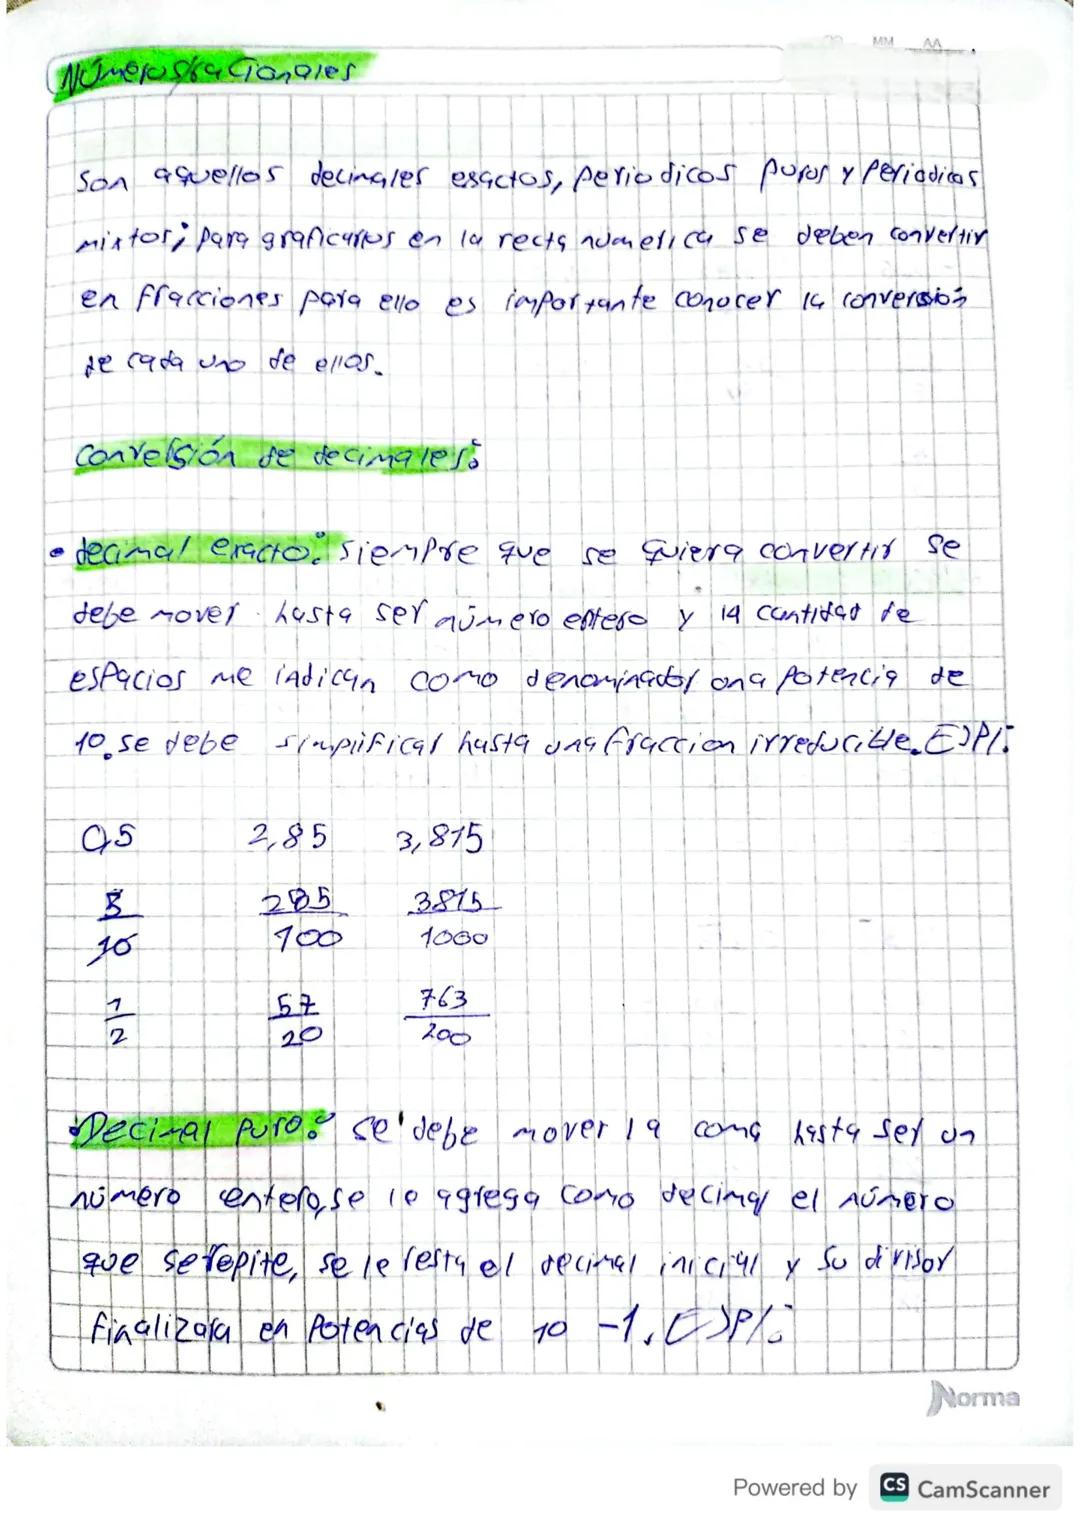 MM AA
Números racionales
Son aquellos decimales esactos, periodicos puros y periodicos
mixtos; para graficarlos en la recta numerica se deben convertir
en fracciones para ello es importante conocer la conversión
de cada uno de ellos.
Conversión de decimales:
• decimal exacto: siempre que se quiera convertir se
debe mover hasta ser número entero y la cantidad de
espacios me indican como denominador una potencia de
10. se debe simplificar hasta una fraccion irreducible. EJPl:
0,5 2,85 3,815
5 285 3815
10 100 1000
1 57 763
2 20 200
• Decimal puro: se debe mover la coma hasta ser un
número entero, se le agrega como decimal el número
que se repite, se le resta el decimal inicial y su divisor
finalizara en potencias de 10 -1. EJPl:
Norma
Powered by CS CamScanner